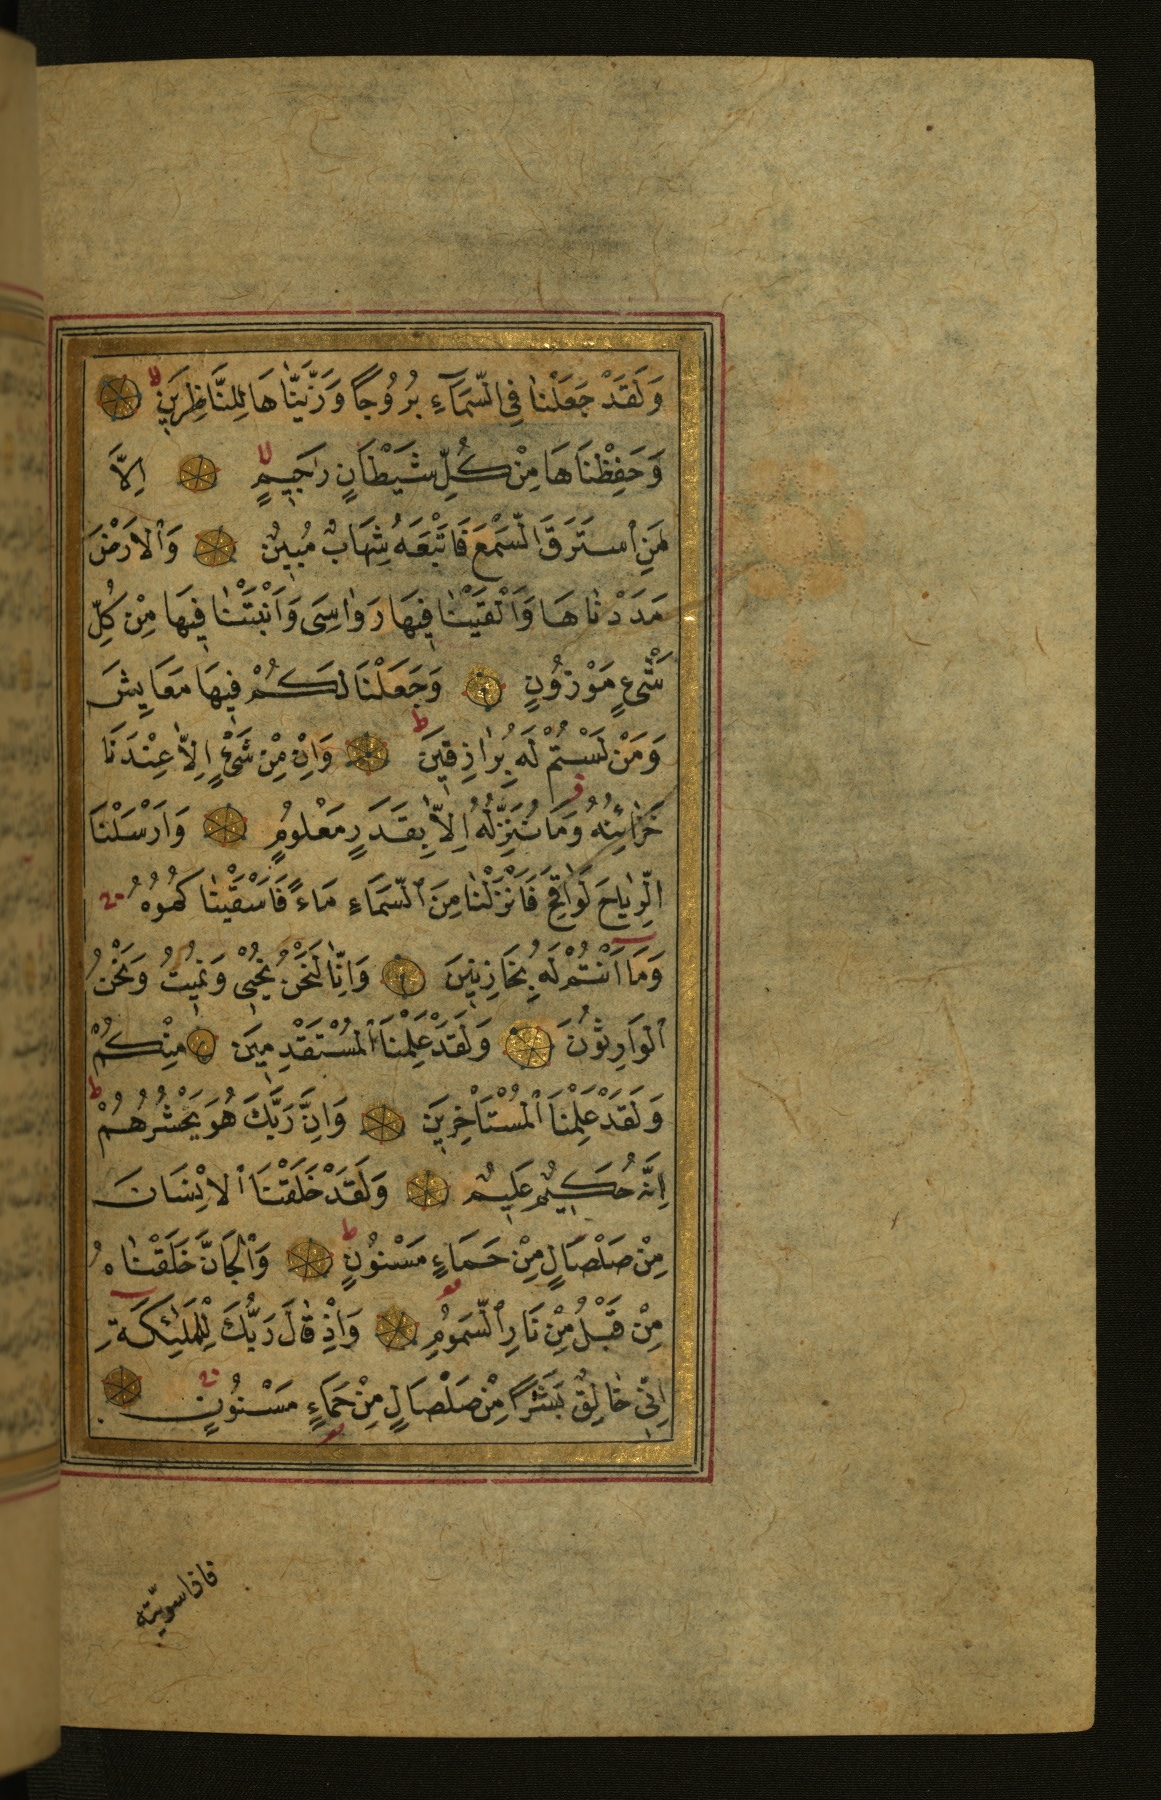 وَلَقَدْ جَعَلْنٰا فِي السَّمَآءِ بُرُوجًا وَزَيَّنّٰا هَا لِلنَّاظِرِينَ لا
وَحَفِظْنَا هَا مِنْ كُلِّ شَيْطَانٍ رَجِيمٍ لا اِلاَّ
مَنِ ٱسْتَرَقَ السَّمْعَ فَاَتْبَعَهُ شِهَابٌ مُبِينٌ وَٱلاَرْضَ
مَدَدْنٰا هَا وَاَلْقَيْنٰا فِيهَا رَوٰاسِىَ وَاَنْبَتْنٰا فِيهَا مِنْ كُلِّ
شَىْءٍ مَوْزُونٍ وَجَعَلْنَا لَكُمْ فِيهَا مَعَايِشَ
وَمَنْ لَسْتُمْ لَهُ بِرٰازِقِينَ ط وَاِنْ مِنْ شَىْءٍ اِلاّٰ عِنْدَنَا
خَزٰائِنُهُ وَمَا نُنَزِّلُهُ اِلاَّ بِقَدَرٍ مَعْلُومٍ وَاَرْسَلْنَا
الرِّيٰاحَ لَوٰاقِحَ فَاَنْزَلْنٰا مِنَ ٱلسَّمَاءِ مَاءً فَاَسْقَيْنٰا كُمُوهُ
وَمَا اَنْتُمْ لَهُ بِخَازِنِينَ وَاِنّٰا لَنَحْنُ نُحْيِى وَنُمِيتُ وَنَحْنُ
ٱلْوَارِثُونَ وَلَقَدْ عَلِمْنَا ٱلْمُسْتَقْدِمِينَ مِنْكُمْ
وَلَقَدْ عَلِمْنَا ٱلْمُسْتَاْخِرِينَ وَاِنَّ رَبَّكَ هُوَ يَحْشُرُهُمْ ط
اِنَّهُ حَكِيمٌ عَلِيمٌ وَلَقَدْ خَلَقْنَا ٱلاِنْسَانَ
مِنْ صَلْصَالٍ مِنْ حَمَاءٍ مَسْنُونٍ ط وَٱلْجَانَّ خَلَقْنٰاهُ
مِنْ قَبْلُ مِنْ نَارِ ٱلسَّمُومِ وَاِذْ قٰالَ رَبُّكَ لِلْمَلٰئِكَةِ
اِنِّي خٰالِقٌ بَشَرًا مِنْ صَلْصَالٍ مِنْ حَمَاءٍ مَسْنُونٍ
فاذا سويته